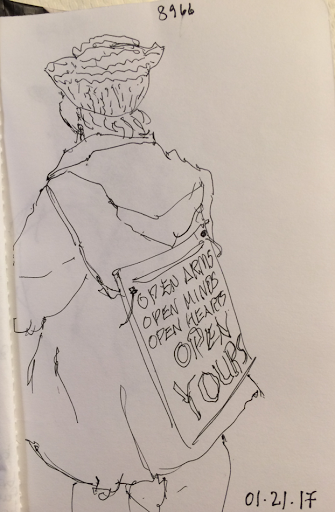 8966
OPEN ARMS
OPEN MINDS
OPEN HEARTS
OPEN
YOURS
01.21.17